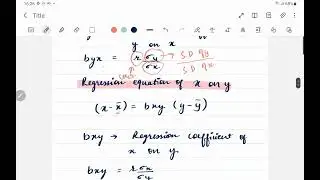 16:26
Title
y on x
byx = rσy / σx → S.D of y / S.D of x
coeff
Regression equation of x on y
(x-x̄) = bxy (y-ȳ)
bxy → Regression coefficient of
x on y.
bxy = rσx / σy